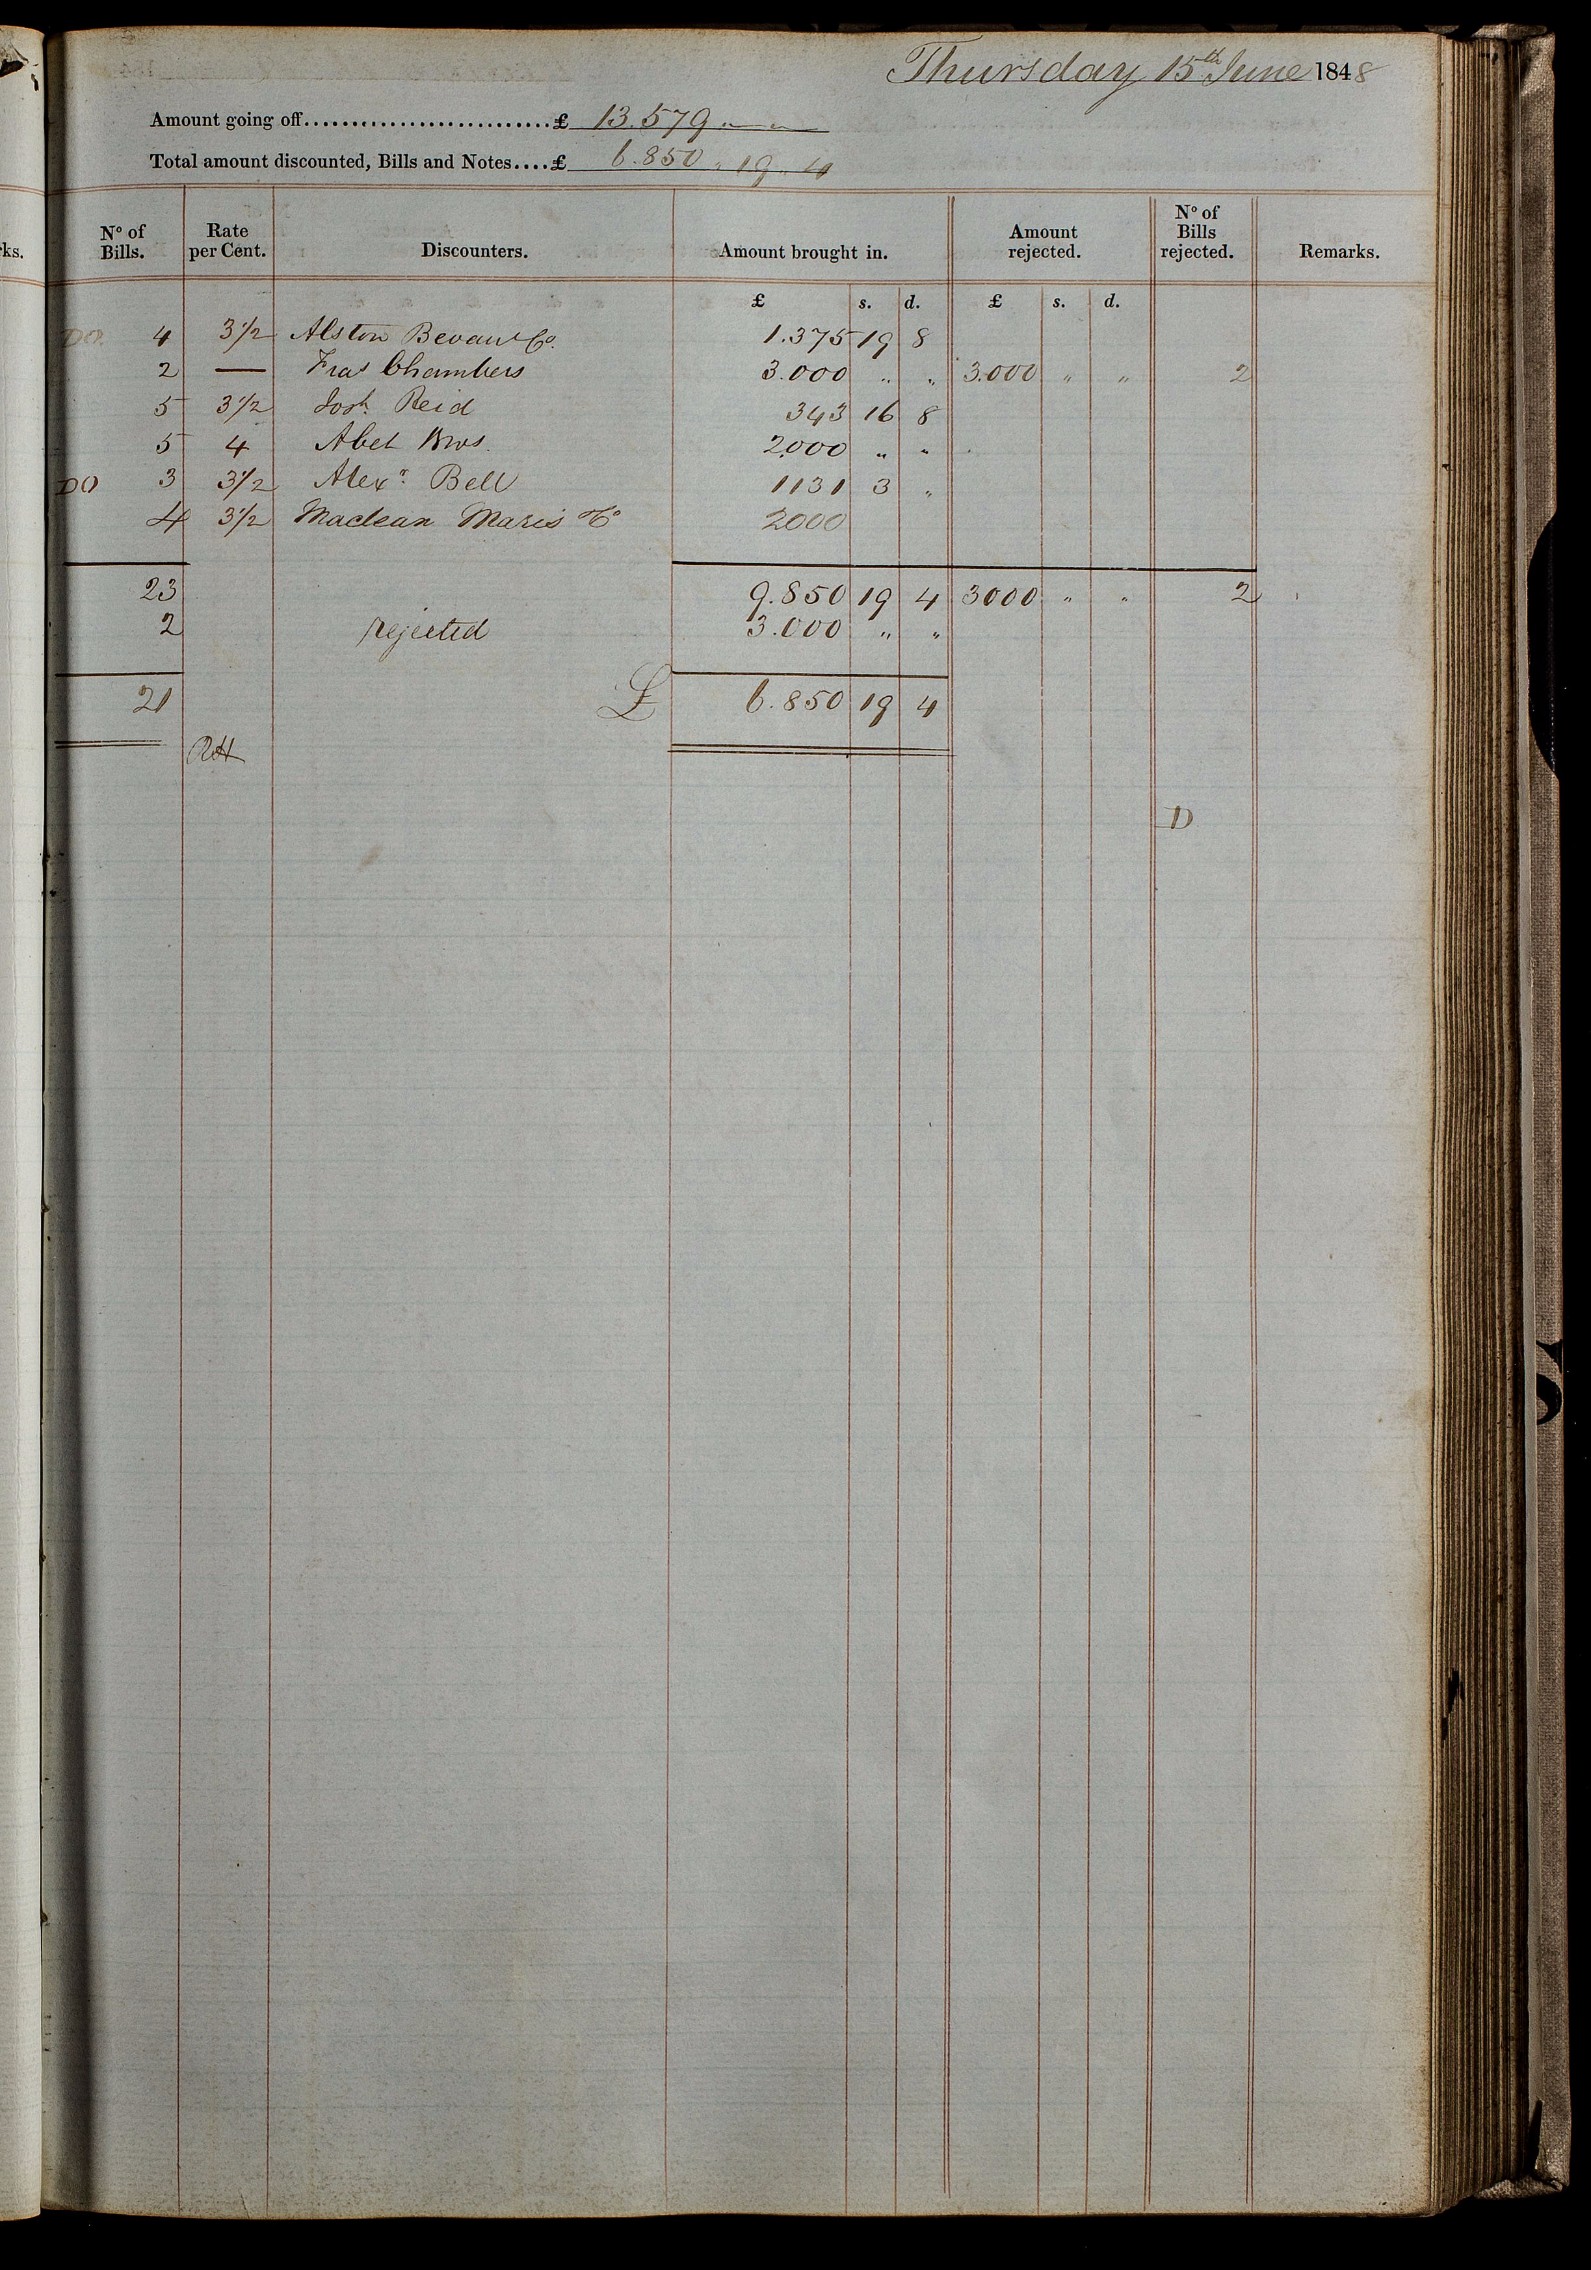 ks.
Thursday 15th June 1848
Amount going off..........................£ 13.579 " "
Total amount discounted, Bills and Notes....£ 6.850 " 19 " 4
No of Bills. Rate per Cent. Discounters. Amount brought in. Amount rejected. No of Bills rejected. Remarks.
£ s. d. £ s. d.
DO. 4 3½ Alston Bevan & Co. 1.375 19 8
2 — Fras Chambers 3.000 " " 3.000 " " 2
5 3½ Josh Reid 343 16 8
5 4 Abel Bros 2.000 " "
DO 3 3½ Alexr Bell 1131 3 "
4 3½ Maclean Maris & Co 2000
23 9.850 19 4 3000 " " 2
2 rejected 3.000 " "
21 £ 6.850 19 4
RH
D